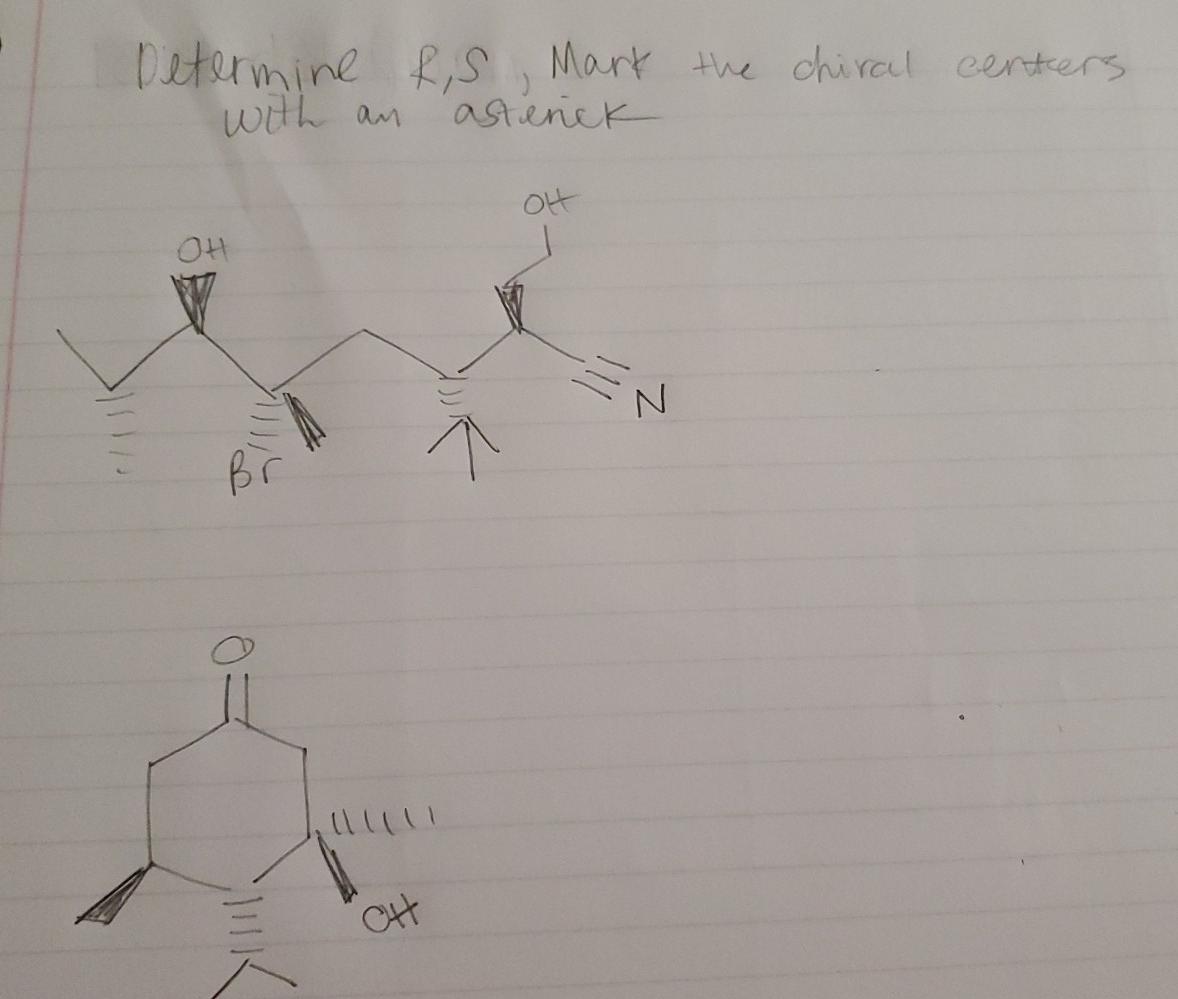 Determine R,S, Mark the chiral centers
with an asterick
OH
OH
Br
N
O
OH